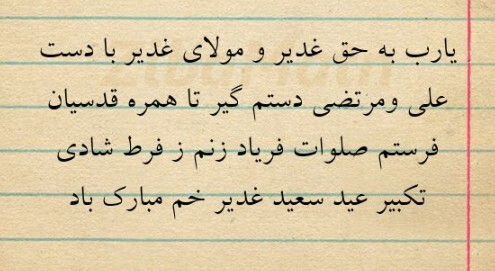 یارب به حق غدیر و مولای غدیر با دست
علی ومرتضی دستم گیر تا همره قدسیان
فرستم صلوات فریاد زنم ز فرط شادی
تکبیر عید سعید غدیر خم مبارک باد